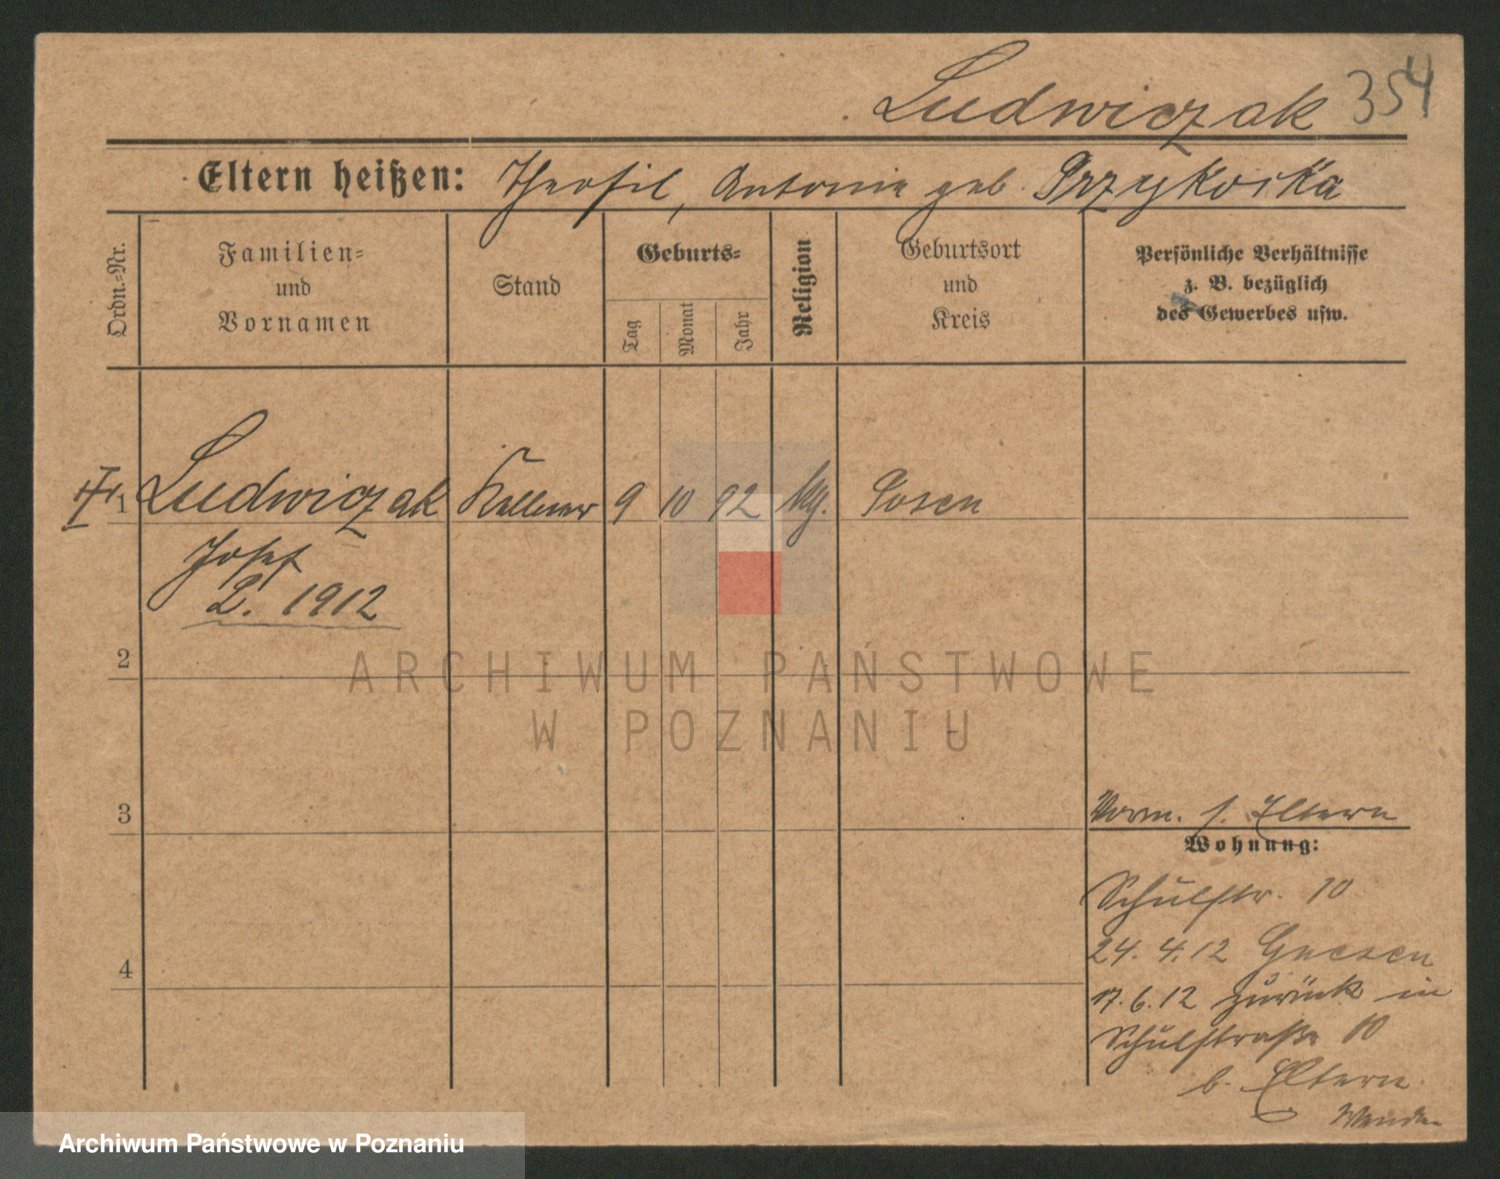 Ludwiczak 354
Eltern heißen: Theofil, Antonie geb. Przykoska
Ordn.-Nr.
Familien-
und
Vornamen
Stand
Geburts-
Tag
Monat
Jahr
Religion
Geburtsort
und
Kreis
Persönliche Verhältnisse
z. B. bezüglich
des Gewerbes usw.
1 Ludwiczak Kellner 9 10 92 Posen
Josef
L. 1912
2
3
4
Vorm. s. Eltern
Wohnung:
Schulstr. 10
24. 4. 12 Gnesen
17. 6. 12 zurück in
Schulstraße 10
b. Eltern.
Wenden
ARCHIWUM PAŃSTWOWE
W POZNANIU
Archiwum Państwowe w Poznaniu